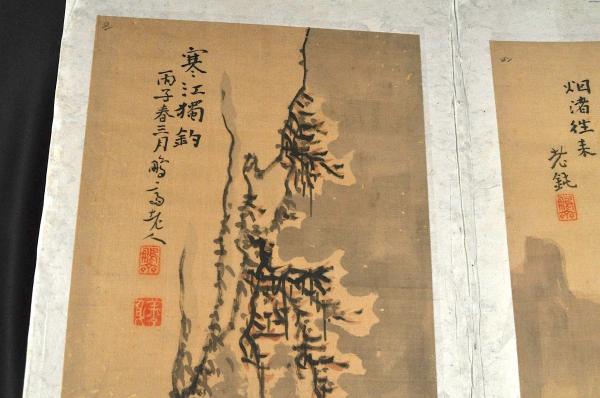 寒江獨釣
丙子春三月鵬高老人
烟渚往来
老鈍